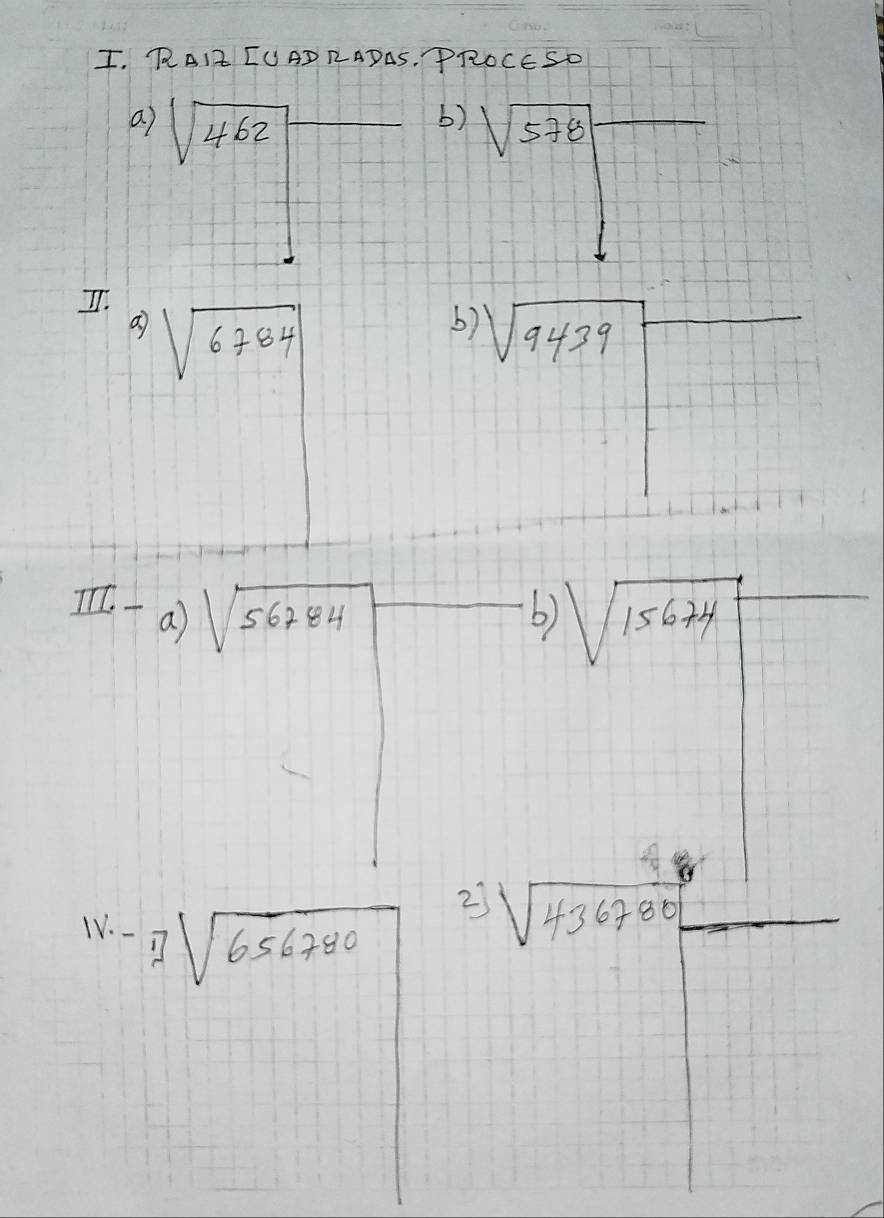 I. RAIZ CUADRADAS. PROCESO
a) √462 b) √578
II. a) √6784 b) √9439
III.- a) √56784 b) √15674
IV.- 1] √656780 2] √436780